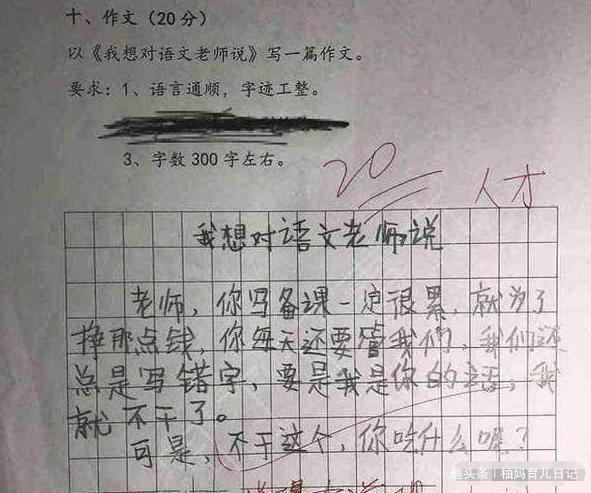 十、作文（20分）
以《我想对语文老师说》写一篇作文。
要求：1、语言通顺，字迹工整。
3、字数300字左右。
20
人才
我想对语文老师说
老师，你写备课一定很累，就为了
挣那点钱，你每天还要管我们，我们还
总是写错字，要是我是你的话，我
就不干了。
可是，不干这个，你吃什么呢？
趣头条丨柚妈育儿日记